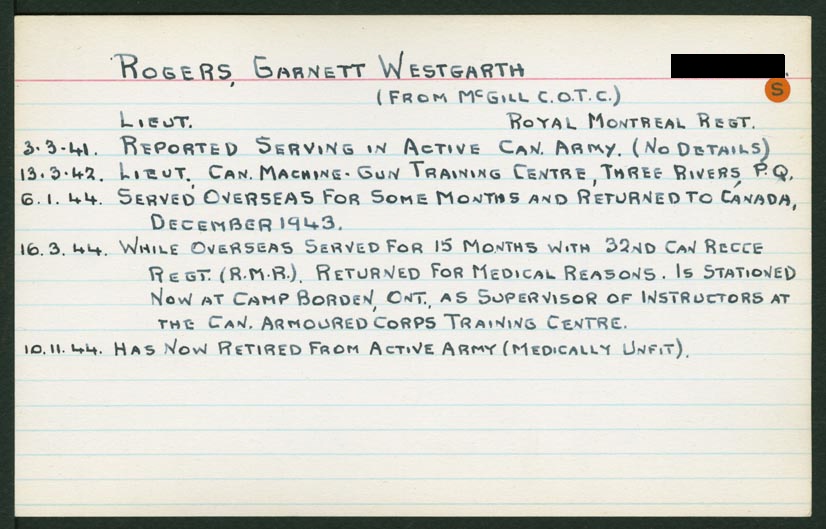 ROGERS, GARNETT WESTGARTH
S
(FROM McGILL C.O.T.C.)
LIEUT. ROYAL MONTREAL REGT.
3.3.41. REPORTED SERVING IN ACTIVE CAN. ARMY. (NO DETAILS)
13.3.42. LIEUT. CAN. MACHINE-GUN TRAINING CENTRE, THREE RIVERS, P.Q.
6.1.44. SERVED OVERSEAS FOR SOME MONTHS AND RETURNED TO CANADA,
DECEMBER 1943.
16.3.44. WHILE OVERSEAS SERVED FOR 15 MONTHS WITH 32ND CAN RECCE
REGT. (R.M.R.). RETURNED FOR MEDICAL REASONS. IS STATIONED
NOW AT CAMP BORDEN, ONT., AS SUPERVISOR OF INSTRUCTORS AT
THE CAN. ARMOURED CORPS TRAINING CENTRE.
10.11.44. HAS NOW RETIRED FROM ACTIVE ARMY (MEDICALLY UNFIT).